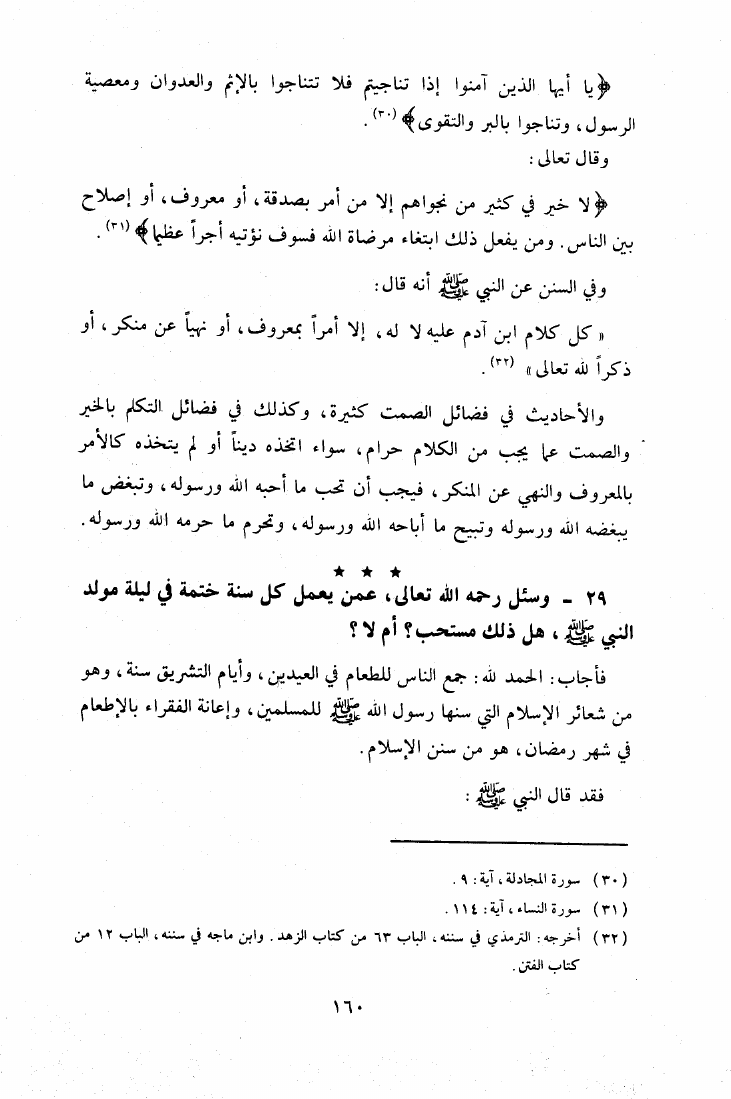 ﴿يا أيها الذين آمنوا إذا تناجيتم فلا تتناجوا بالإثم والعدوان ومعصية
الرسول، وتناجوا بالبر والتقوى﴾ (٣٠).
وقال تعالى:
﴿لا خير في كثير من نجواهم إلا من أمر بصدقة، أو معروف، أو إصلاح
بين الناس. ومن يفعل ذلك ابتغاء مرضاة الله فسوف نؤتيه أجراً عظيما﴾ (٣١).
وفي السنن عن النبي ﷺ أنه قال:
« كل كلام ابن آدم عليه لا له، إلا أمراً بمعروف، أو نهياً عن منكر، أو
ذكراً لله تعالى» (٣٢).
والأحاديث في فضائل الصمت كثيرة، وكذلك في فضائل التكلم بالخير
والصمت عما يجب من الكلام حرام، سواء اتخذه ديناً أو لم يتخذه كالأمر
بالمعروف والنهي عن المنكر، فيجب أن تحب ما أحبه الله ورسوله، وتبغض ما
يبغضه الله ورسوله وتبيح ما أباحه الله ورسوله، وتحرم ما حرمه الله ورسوله.
★ ★ ★
٢٩ ـ وسئل رحمه الله تعالى، عمن يعمل كل سنة ختمة في ليلة مولد
النبي ﷺ، هل ذلك مستحب؟ أم لا؟
فأجاب: الحمد لله: جمع الناس للطعام في العيدين، وأيام التشريق سنة، وهو
من شعائر الإسلام التي سنها رسول الله ﷺ للمسلمين، وإعانة الفقراء بالإطعام
في شهر رمضان، هو من سنن الإسلام.
فقد قال النبي ﷺ:
(٣٠) سورة المجادلة، آية: ٩.
(٣١) سورة النساء، آية: ١١٤.
(٣٢) أخرجه: الترمذي في سننه، الباب ٦٣ من كتاب الزهد. وابن ماجه في سننه، الباب ١٢ من
كتاب الفتن.
١٦٠